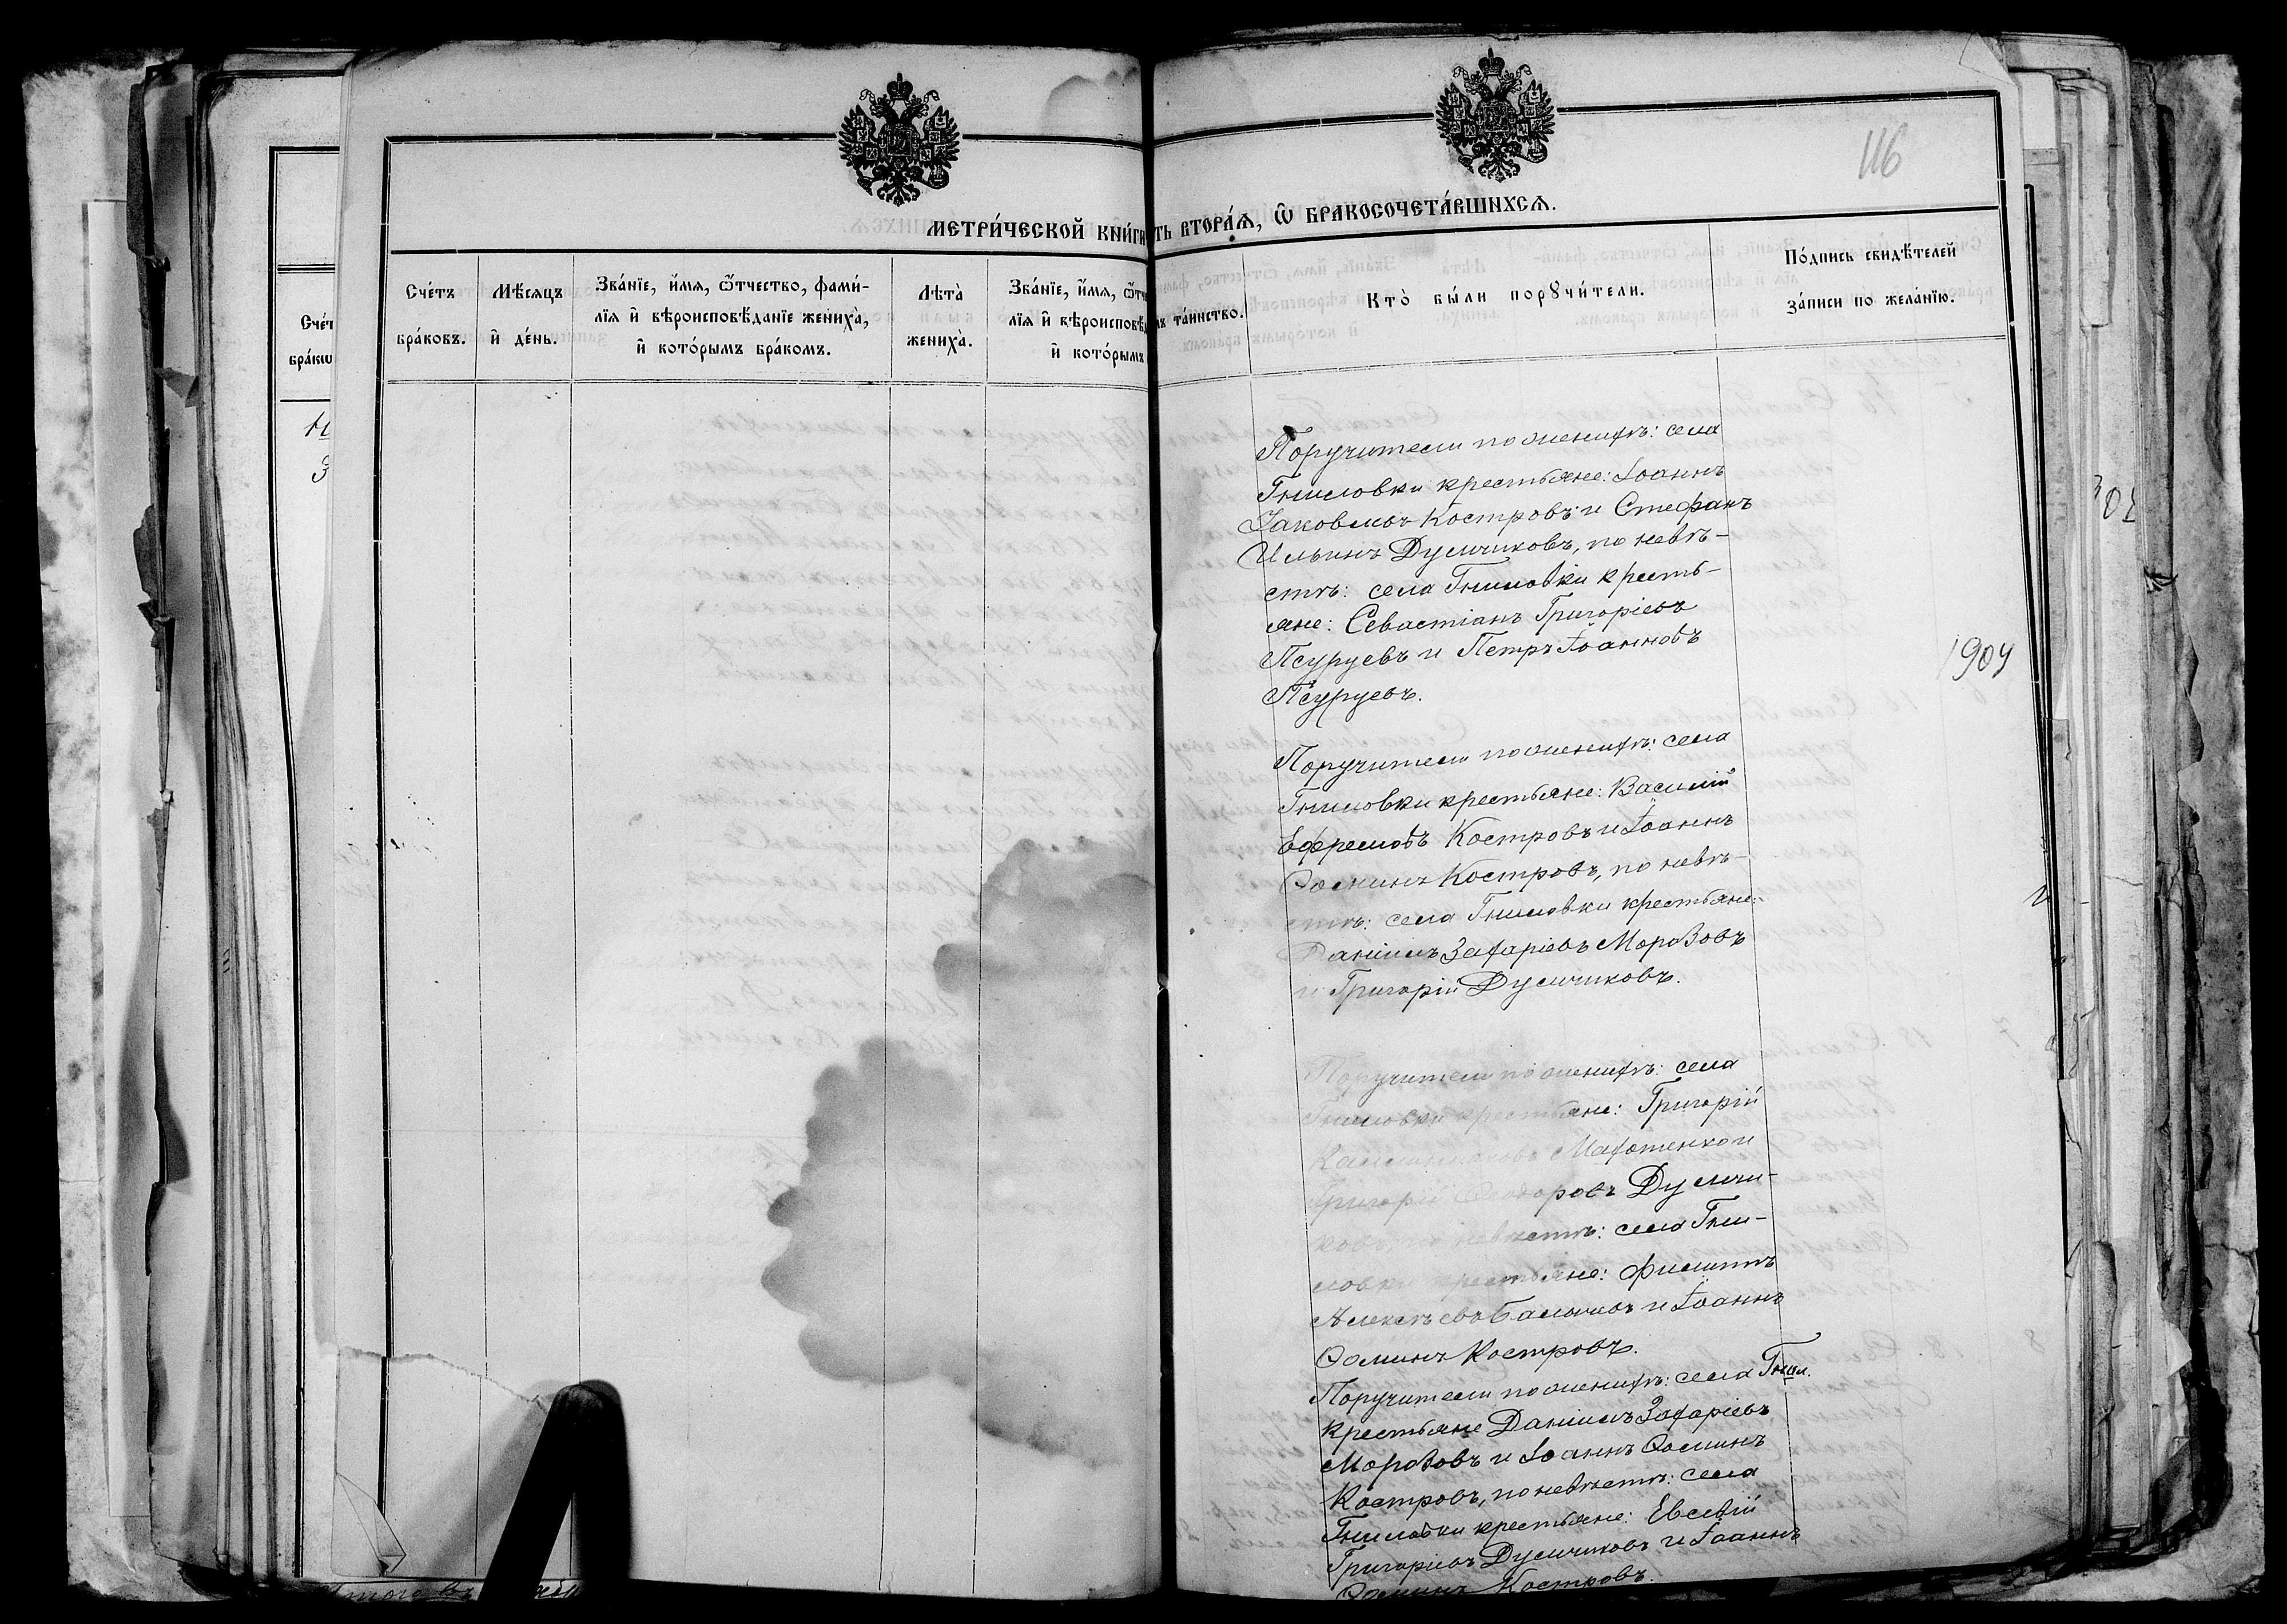 116
МЕТРИ́ЧЕСКОЙ КНИ́ГИ
ТЬ ВТОРА́Ѧ, Ѿ БРАКОСОЧЕТА́ВШИХСѦ.
Сче́тъ бра́ковъ.
Мѣ́сяцъ и҆ де́нь.
Зва́нїе, и҆́мя, ѻ҆́тчество, фами́-
лїя и҆ вѣроисповѣ́данїе жениха̀,
и҆ кото́рымъ бра́комъ.
Лѣта̀ жениха̀.
Зва́нїе, и҆́мя, ѻ҆́тче
лїя и҆ вѣроисповѣ́д
и҆ кото́рымъ
та́инство.
Кто̀ бы́ли порꙋчи́тели.
По́дпись свидѣ́телей
за́писи по жела́нїю.
Сче́т
бра́кω
Поручители по женихѣ: села
Гниловки крестьяне: Іоаннъ
Іаковлевъ Костровъ и Стефанъ
Ильинъ Дульчиковъ, по невѣ-
стѣ: села Гниловки кресть-
яне: Севастіанъ Григоріевъ
Псуруевъ и Петръ Іоанновъ
Псуруевъ.
1904
Поручители по женихѣ: села
Гниловки крестьяне: Василій
Ефремовъ Костровъ и Іоаннъ
Ѳоминъ Костровъ, по невѣ-
стѣ: села Гниловки крестьяне:
Даніилъ Захаріевъ Морозовъ
и Григорій Дульчиковъ.
Поручители по женихѣ: села
Гниловки крестьяне: Григорій
Махотенко и
Григорій Ѳеодоровъ Дульчи-
ковъ, по невѣстѣ: села Гни-
ловки крестьяне: Филиппъ
Алексѣевъ и Іоаннъ
Ѳоминъ Костровъ.
Поручители по женихѣ: села Гнил.
крестьяне Даніилъ Захаріевъ
Морозовъ и Іоаннъ Ѳоминъ
Костровъ, по невѣстѣ: села
Гниловки крестьяне: Евсевій
Григоріевъ Дульчиковъ и Іоаннъ
Ѳоминъ Костровъ.